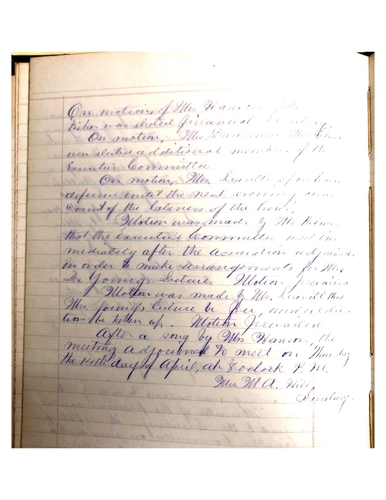 On motion of Mrs Hanson, Mr
was elected financial
On motion, Mrs
were elected additional members of the
Executive Committee
On motion, Mrs
deferred until the next evening, on ac-
count of the lateness of the hour.
Motion was made by Mr
that the Executive Committee meet im-
mediately after the association adjourned
in order to make arrangements for Mrs
De Young's Lecture. Motion prevailed
Motion was made by Mr. that
Mrs Young's Lecture be free, and a collec-
tion be taken up. Motion prevailed
After a song by Mrs Hanson, the
meeting adjourned to meet on Thursday
the 14th day of April, at 8 o'clock P. M.
Mrs M. A. Hill,
Secretary.